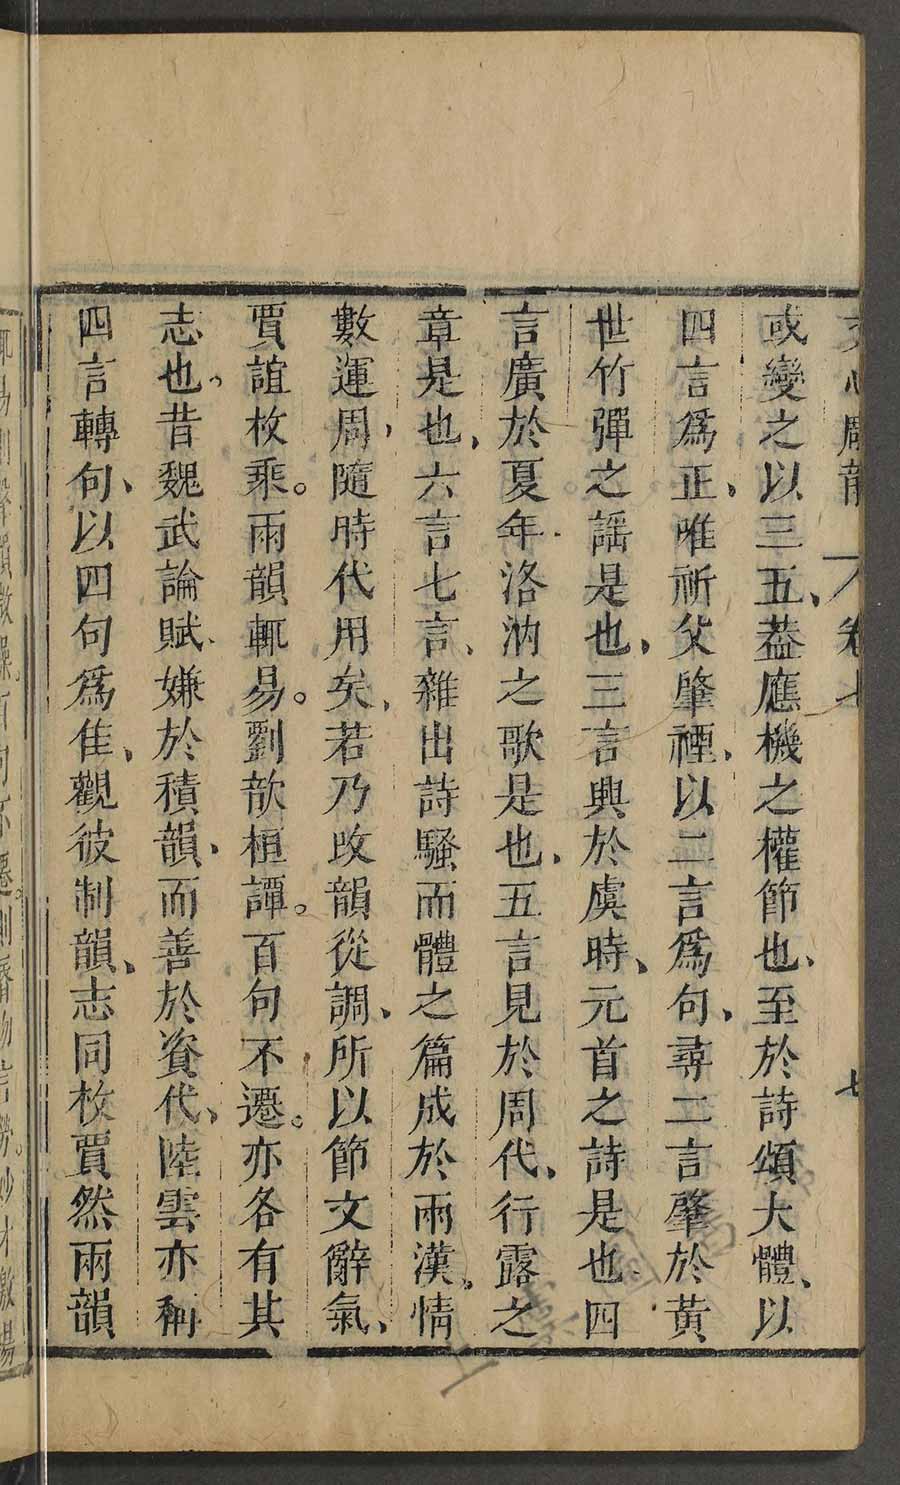 文心雕龍 卷七 七
或變之以三五、葢應機之權節也、至於詩頌大體、以
四言爲正、唯祈父肇禋、以二言爲句、尋二言肇於黃
世竹彈之謡是也、三言興於虞時、元首之詩是也四
言廣於夏年、洛汭之歌是也、五言見於周代、行露之
章是也、六言七言、雜出詩騷而體之篇成於兩漢、情
數運周、隨時代用矣、若乃改韻從調、所以節文辭氣、
賈誼枚乘。兩韻輒易。劉歆桓譚。百句不遷。亦各有其
志也、昔魏武論賦、嫌於積韻、而善於資代、陸雲亦稱
四言轉句、以四句爲佳、觀彼制韻、志同枚賈然兩韻